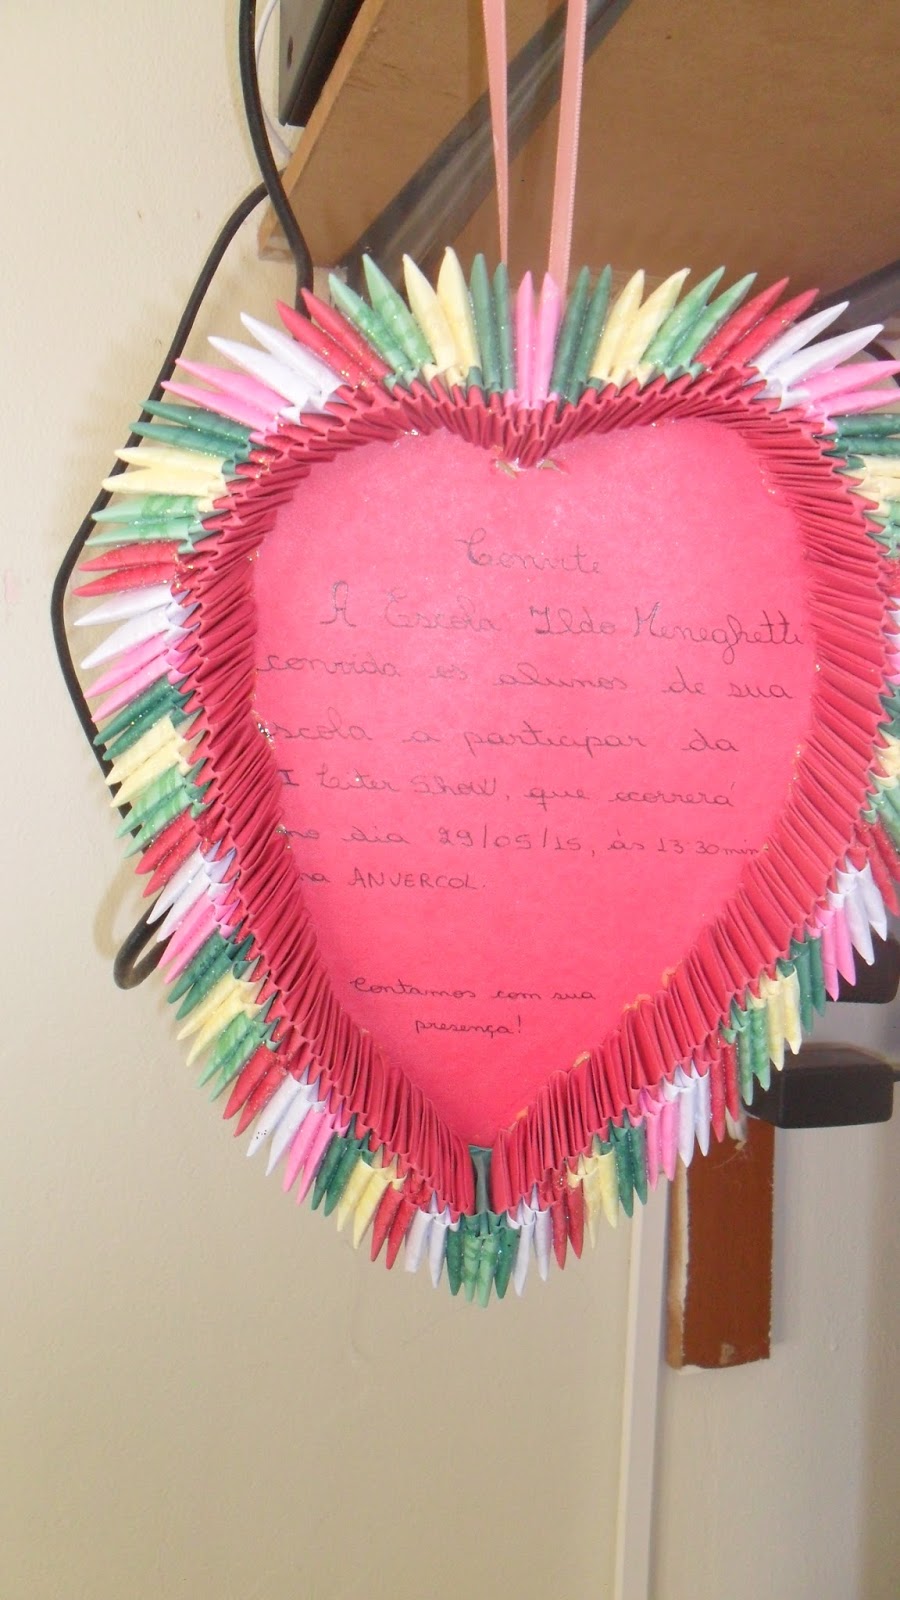 Convite
A Escola Ildo Meneghetti
convida os alunos de sua
escola a participar da
I Liter Show, que ocorrerá
no dia 29/05/15, ás 13:30min
na ANVERCOL.
Contamos com sua
presença!